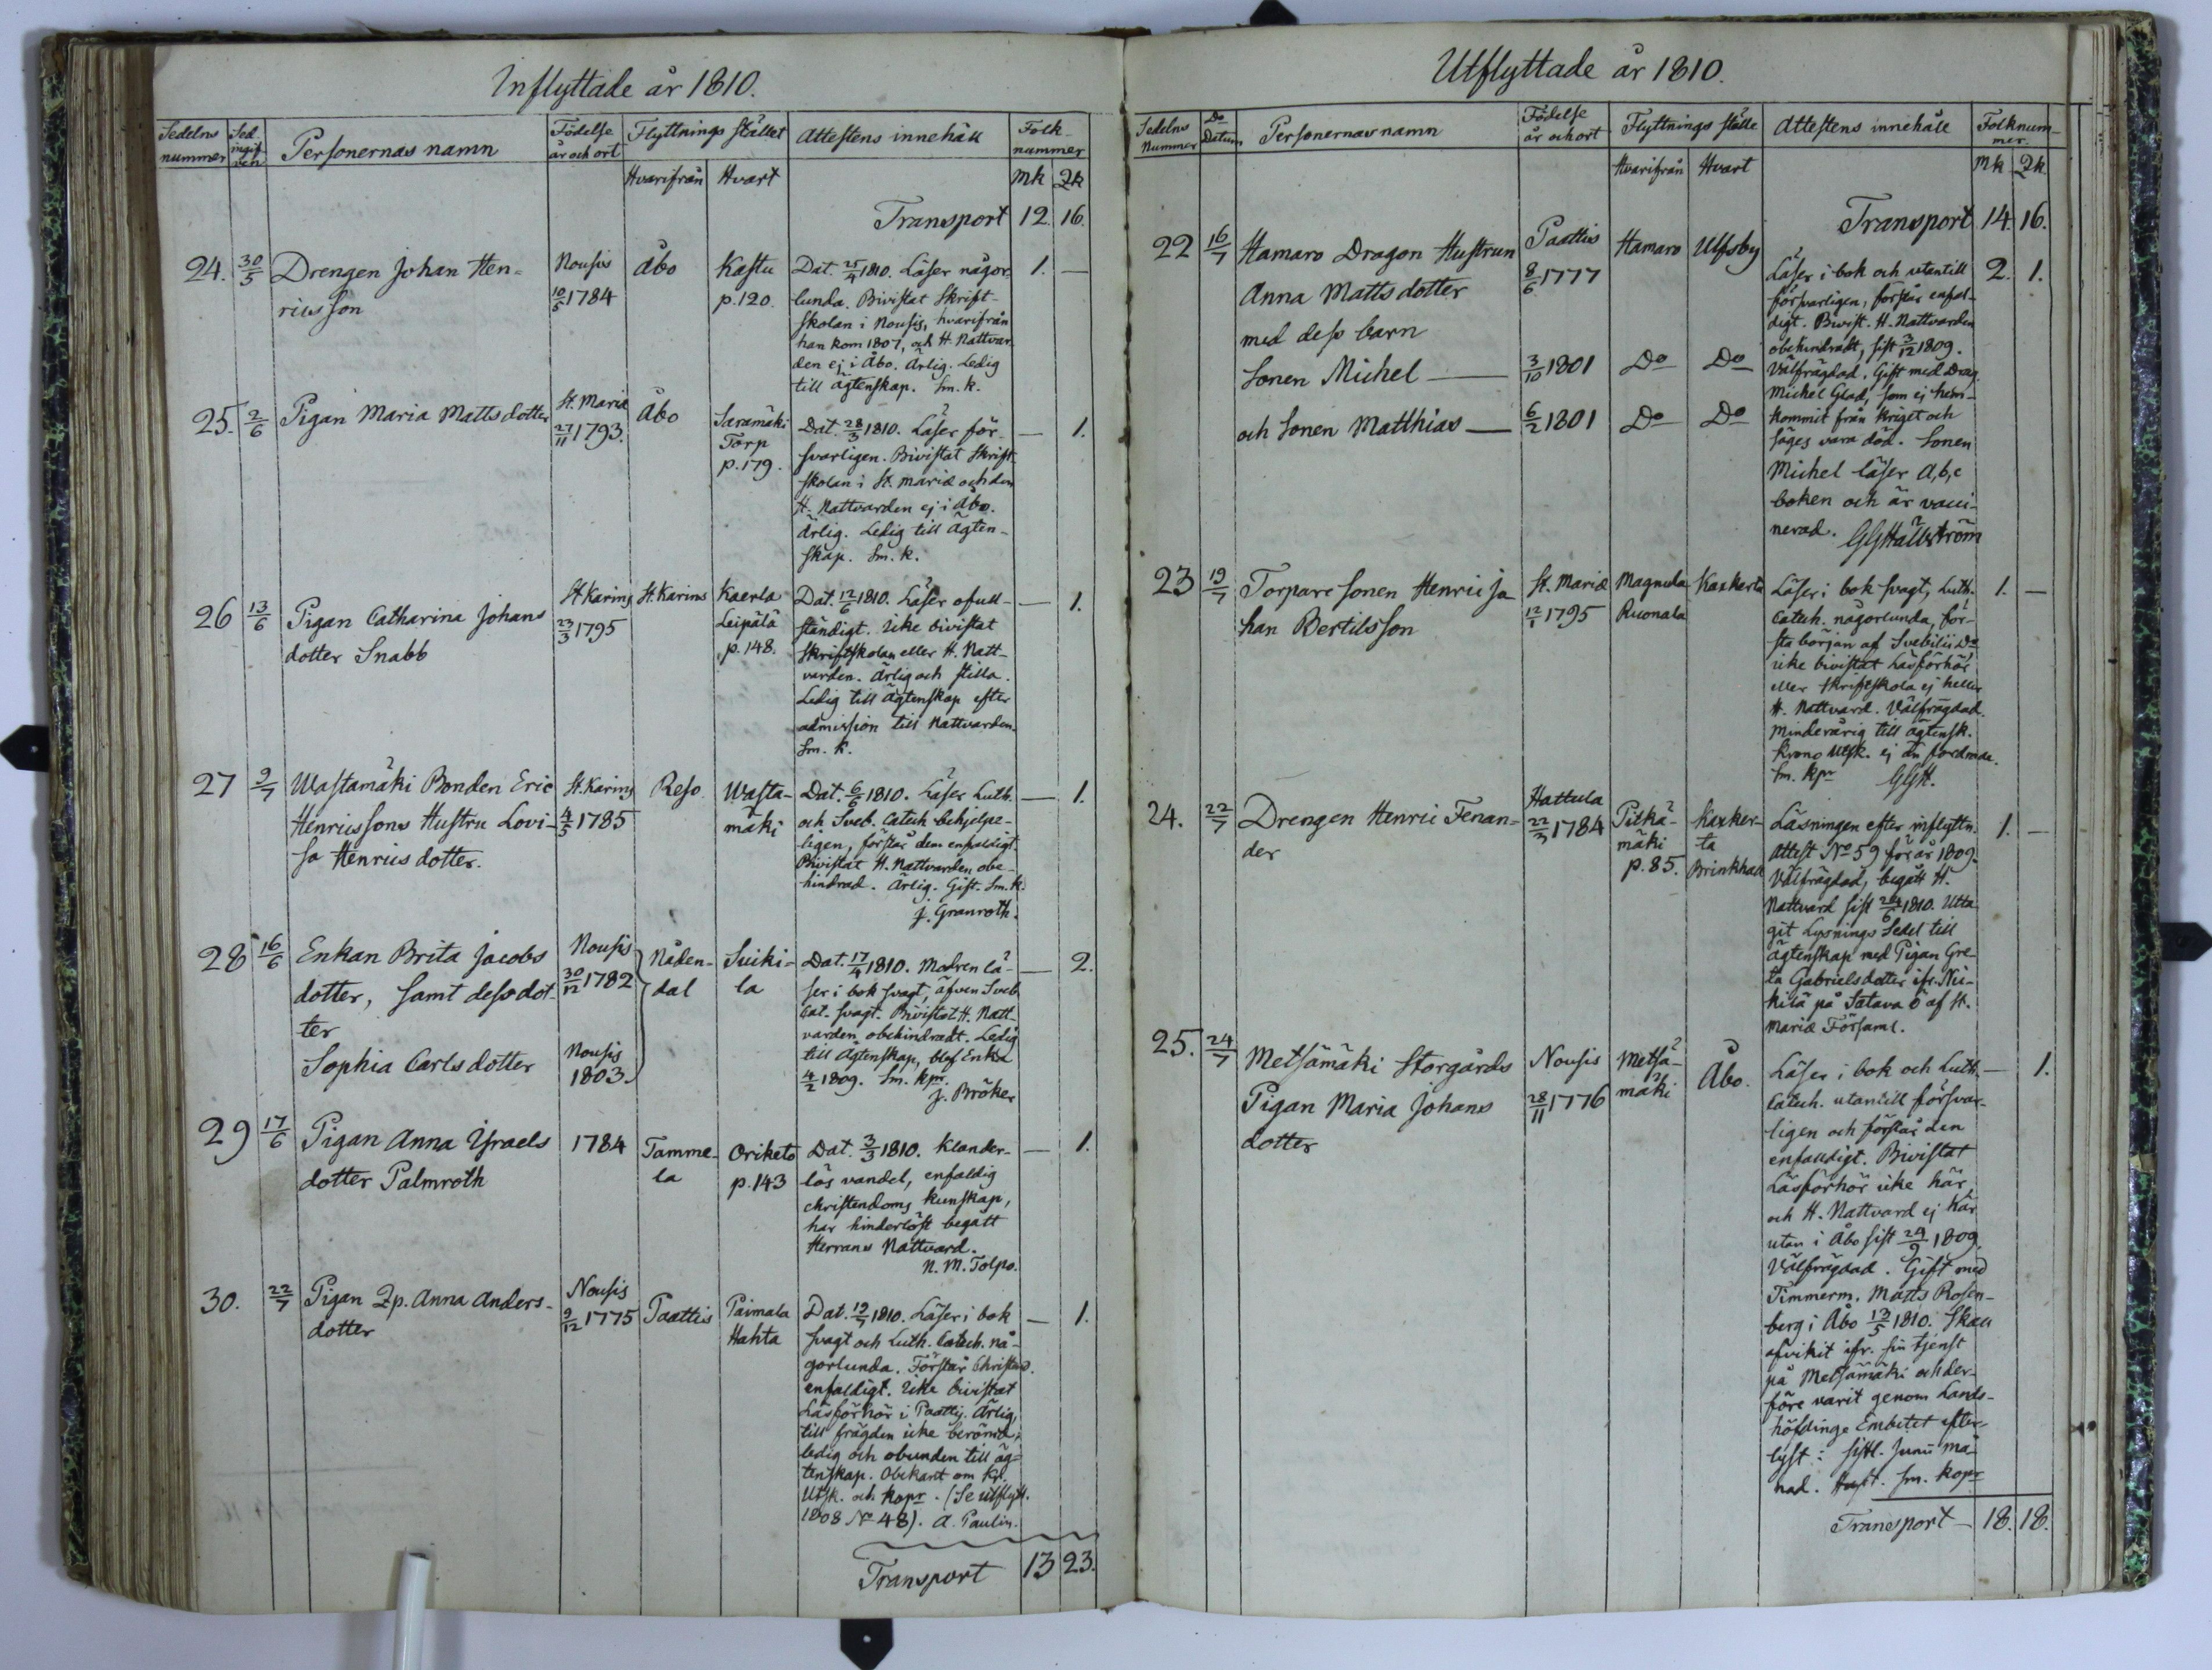 Inflyttade år 1810.
Sedelns nummer
Sed. ingif ven
Personernas namn
Födelse år och ort
Flyttnings stället
Hvarifrån Hvart
Attestens innehåll
Folk-nummer
Mk Qk
Transport 12. 16.
24. 30/5 Drengen Johan Hen-
ricsson
Nousis
10/5 1784
Åbo
Kastu
p. 120.
Dat. 25/4 1810. Läser någor-
lunda. Bivistat Skrift-
skolan i Nousis, hvarifrån
han kom 1807, och H. Nattvar
den ej i Åbo. Ärlig. Ledig
till ägtenskap. Sm. k.
1. —
25. 2/6 Pigan Maria Matts dotter
St. Mariæ
27/11 1793.
Åbo
Saramäki
Torp
p. 179.
Dat. 28/3 1810. Läser för-
svarligen. Bivistat Skrift-
skolan i St. Mariæ och den
H. Nattvarden ej i Åbo.
Ärlig. Ledig till ägten-
skap. Sm. k.
— 1.
26 13/6 Pigan Catharina Johans
dotter Snabb
St Karins
23/3 1795
St. Karins
Kaerla
Leipälä
p. 148.
Dat. 12/6 1810. Läser ofull-
ständigt. Icke bivistat
Skriftskolan eller H. Natt-
varden. Ärlig och stilla.
Ledig till ägtenskap efter
admission till Nattvarden.
Sm. k.
— 1.
27 9/7 Wastamäki Bonden Eric
Henricssons Hustru Lovi-
sa Henrics dotter.
St. Karins
4/5 1785
Reso
Wasta-
mäki
Dat. 6/6 1810. Läser Luth.
och Sveb. Catech behjelpe-
ligen, förstår dem enfaldigt.
Bivistat H. Nattvarden obe-
hindrad. Ärlig. Gift. Sm. k.
J. Granroth.
— 1.
28 16/6 Enkan Brita Jacobs
dotter, samt dess dot-
ter
Sophia Carls dotter
Nousis
30/12 1782
Nousis
1803.
Nåden-
dal
Suiki-
la
Dat. 17/4 1810. Modren lä-
ser i bok svagt, äfven Sveb.
Cat. svagt. Bivistat H. Natt-
varden obehindradt. Ledig
till ägtenskap, blef Enka
4/2 1809. Sm. kpr.
J. Bröker
— 2.
29 17/6 Pigan Anna Israels
dotter Palmroth
1784
Tamme-
la
Oriketo
p. 143
Dat. 3/3 1810. Klander-
lös vandel, enfaldig
christendoms kunskap,
har hinderlöst begått
Herrans Nattvard.
N. M. Tolpo.
— 1.
30. 22/7 Pigan Qp. Anna Anders-
dotter
Nousis
9/12 1775
Paattis
Paimala
Hahta
Dat. 19/7 1810. Läser i bok
svagt och Luth. Catech. nå-
gorlunda. Förstår Christend.
enfaldigt. Icke bivistat
Läsförhör i Paattis. Ärlig,
till frägden icke berömd,
ledig och obunden till äg-
tenskap. Obekant om Kr.
Utsk. och kopr. (Se utflytt.
1808 No 48). A. Paulin.
— 1.
Transport 13 23.
Utflyttade år 1810.
Sedelns Nummer
Do Datum
Personernas namn
Födelse år och ort
Flyttnings ställe
Hvarifrån Hvart
Attestens innehåll
Folknum-mer.
Mk Qk
Transport 14. 16.
22 16/7 Hamaro Dragon Hustrun
Anna Matts dotter
med dess barn
Sonen Michel —
och Sonen Matthias —
Paattis
8/6 1777
3/10 1801
6/2 1801
Hamaro
Do
Do
Ulfsby
Do
Do
Läser i bok och utantill
försvarligen, förstår enfal-
digt. Bivist. H. Nattvarden
obehindradt, sist 3/12 1809.
Välfrägdad. Gift med Drag.
Michel Glad, som ej hem-
kommit från kriget och
säges vara död. Sonen
Michel läser a, b, c
boken och är vacci-
nerad. GGHällström
2. 1.
23 19/7 Torpare sonen Henric Jo
han Bertilsson
St. Mariæ
12/1 1795
Magnula
Ruonala
Kaxkerta
Läser i bok svagt, Luth.
Catech. någorlunda, för-
sta början af Svebilii Do
icke bivistat Läsförhör
eller Skriftskola ej heller
H. Nattvard. Välfrägdad.
Minderårig till ägtensk.
Krono Utsk. ej än fordrade.
Sm. kpr GGH.
1. —
24. 22/7 Drengen Henric Fenan-
der
Hattula
22/3 1784
Pitkä-
mäki
p. 85.
Kaxker-
ta
Brinkhall
Läsningen efter inflyttn.
Attest No 59 för år 1809.
Välfrägdad, begått H.
Nattvard sist 24/6 1810. Utta
git Lysnings Sedel till
ägtenskap med Pigan Gre-
ta Gabriels dotter ifr. Nii-
kilä på Satava ö af St.
Mariæ Församl.
1. —
25. 24/7 Metsämäki Storgårds
Pigan Maria Johans
dotter
Nousis
28/11 1776
Metsä-
mäki
Åbo.
Läser i bok och Luth.
Catech. utantill försvar-
ligen och förstår den
enfalldigt. Bivistat
Läsförhör icke här,
och H. Nattvard ej här
utan i Åbo sist 24/9 1809.
Välfrägdad. Gift med
Timmerm. Matts Rosen-
berg i Åbo 13/5 1810. Skall
afvikit ifr. sin tjenst
på Metsämäki och der-
före varit genom Lands-
höfdinge Embetet efter-
lyst i sistl. Junii Må-
nad. Sm. kopr
— 1.
Transport — 18. 18.